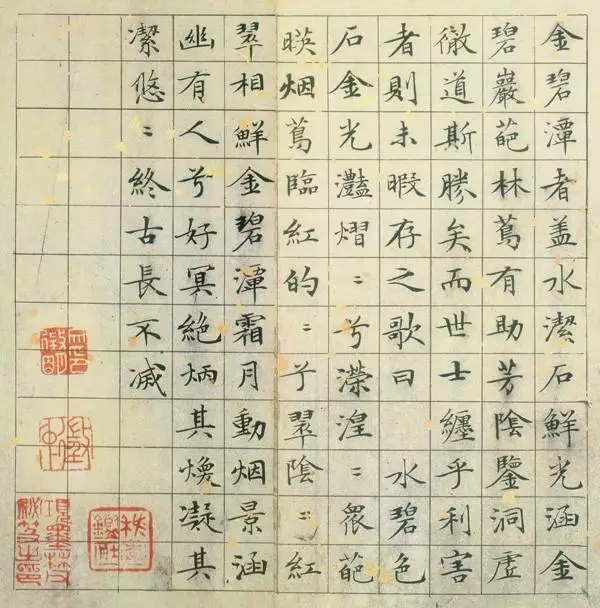 金碧潭者盖水潔石鮮光涵金
碧巖葩林蔦有助芳陰鑒洞虛
徹道斯勝矣而世士纏乎利害
者則未暇存之歌曰 水碧色
石金光灩熠〻兮濚湟〻衆葩
暎烟蔦臨紅的〻兮翠陰〻紅
翠相鮮金碧潭霜月動烟景涵
幽有人兮好冥絕炳其煥凝其
潔悠〻終古長不滅
項墨林父
秘笈之印